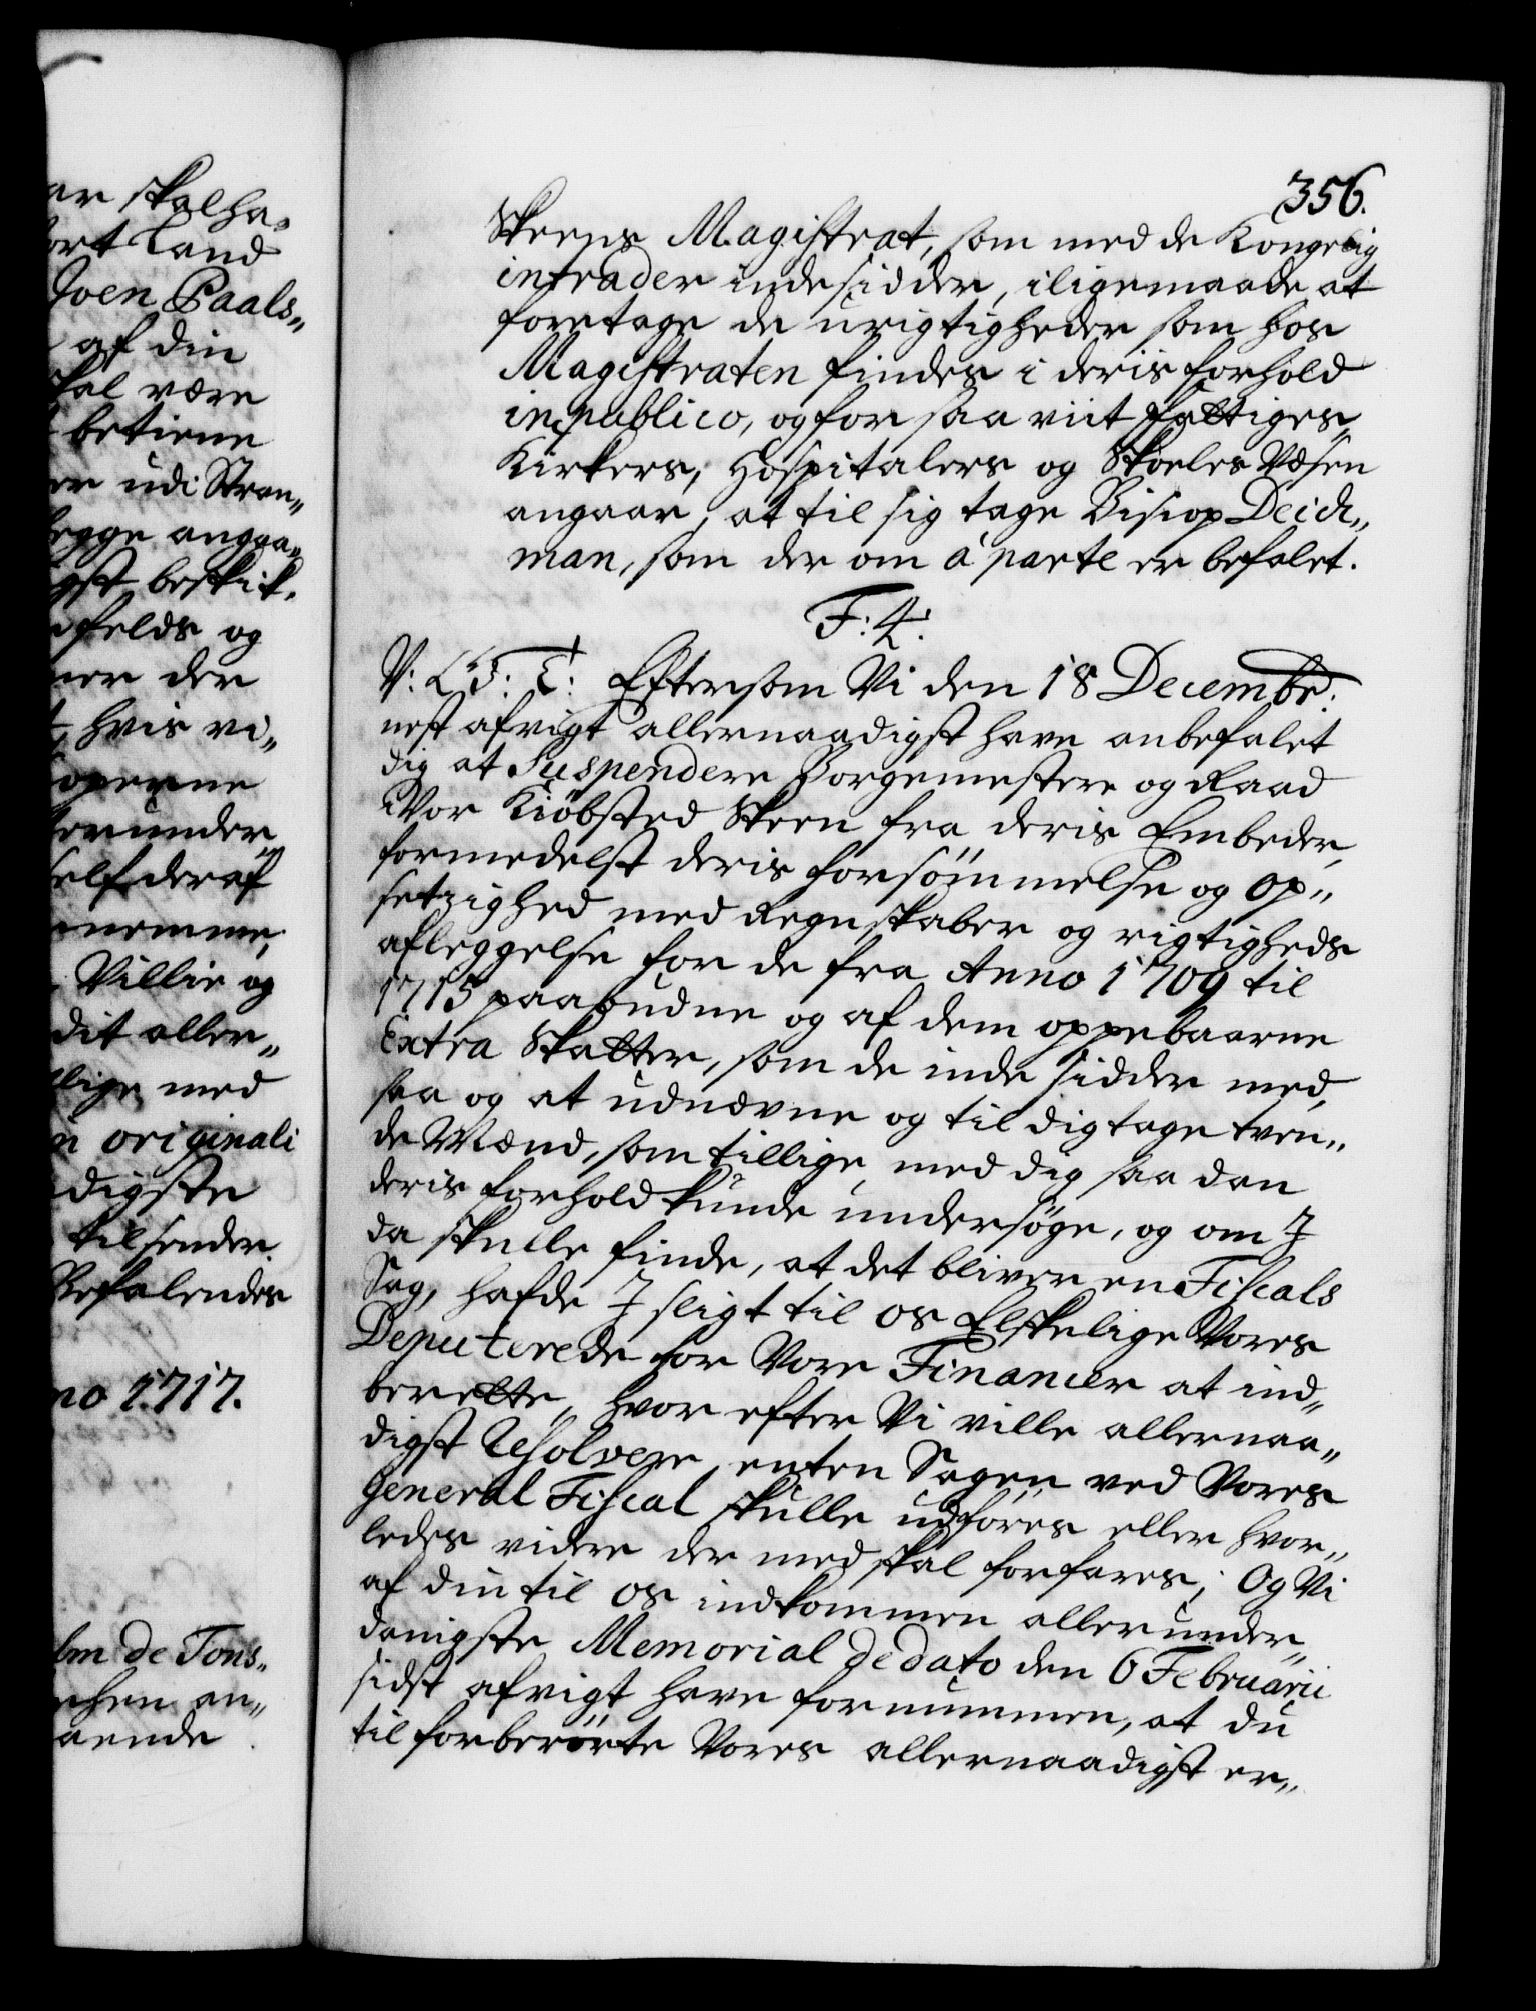 ar skalha„
ort Land
Joen Paals„
af din
skal være
betiene
er udi Stran„
egge angaa„
gst beskik„
felds og
ner der
hvis vi„
operne
erunder
self deraf
nemme,
Villie og
dit aller„
lige med
n originali
digste
tilsender.
Befalendes
no 1717.
lm de Tons„
chen an„
aende.
356.
Skeens Magistrat, som med de Kongelig
intrader indesidder, iligemaade at
foretage de urigtigheder som hos
Magistraten findes i deris forhold
in publico, og for saa viit fattiges,
Kirkers, Hospitalers og Skoeles Væsen
angaar, at til sig tage Bisiop Deich„
man, som der om a parte er befalet.
F: 4.
V: G: T: Eftersom Vi den 18 Decembr:
nest afvigt allernaadigst have anbefalet
dig at Suspendere Borgemestere og Raad
i Vor Kiöbsted Skeen fra deris Embeder,
formedelst deris forsömmelse og op„
setzighed med Regnskaber og rigtigheds
afleggelse for de fra Anno 1709 til
1715 paabudne og af dem oppebaarne
Extra Skatter, som de inde sidder med,
saa og at udnævne og til dig tage tven„
de Mænd, som tillige med dig saa dan
deris forhold kunde undersöge, og om I
da skulle finde, at det bliver en Fiscals
Sag, hafde I sligt til os Elskelige Vores
Deputerede for Vore Financer at ind„
berette, hvor efter Vi ville allernaa„
digst Resolvere, enten Sagen ved Vores
General Fiscal skulle udföres eller hvor„
ledes videre der med skal forfares; Og Vi
af din til os indkommen allerunder„
danigste Memorial de dato den 6 Februarii
sidst afvigt have fornummen, at du
til forberörte Vores allernaadigst er„